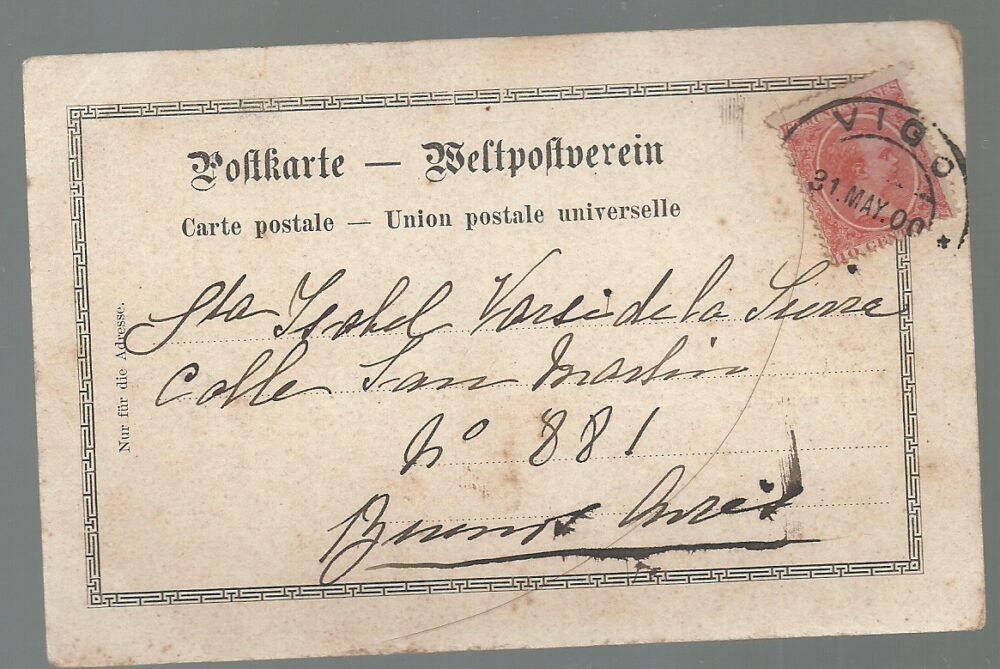 Postkarte — Weltpostverein
Carte postale — Union postale universelle
VIGO
31.MAY.00
10 CEN
Nur für die Adresse.
Sta Isabel Varsi de la Sierra
Calle San Martin
Nº 881
Buenos Aires